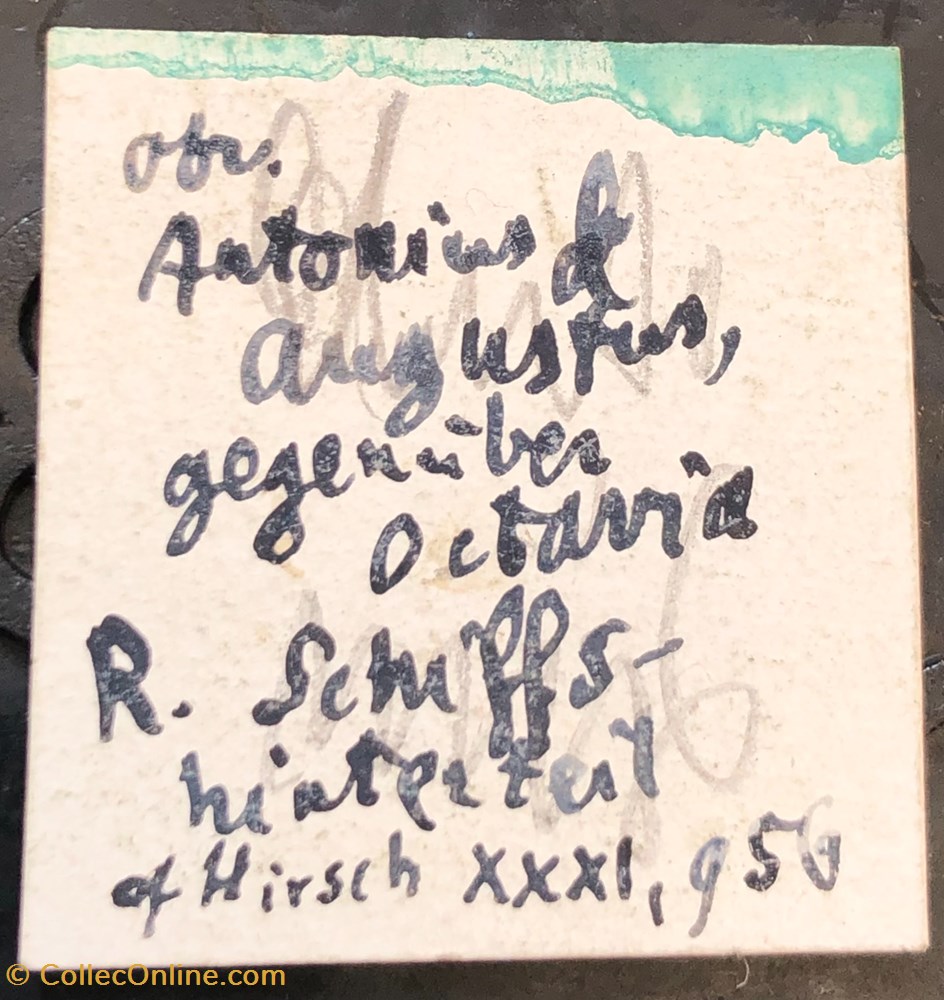 obv.
Antonius &
Augustus,
gegenüber
Octavia
R. Schiffs-
hinterteil
cf Hirsch XXXI, 956
© CollecOnline.com